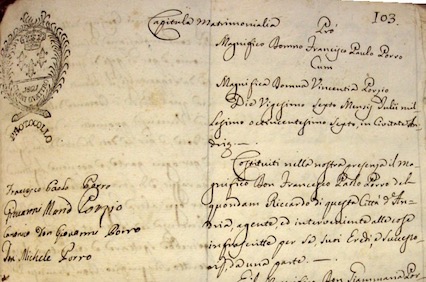 103.
Capitula Matrimonialia Pro
Magnifico Domno Francisco Paulo Porro
Cum
Magnifica Domna Vincentia Porzio
Die Vigesimo Septo Mensis Julii mil-
lesimo octincentesimo Septo, in Civitate An-
drię —
Costituiti nella nostra presenza il Ma-
gnifico Don Francesco Paolo Porro del
quondam Riccardo di questa Città d'An-
dria, agente, ed interveniente alle cose
infrascritte per se, suoi Eredi, e Successo-
ri, da una parte. —
Ed il Magnifico Don Giammaria Por-
PROTOCOLLO
Francesco Paolo Porro
Giovanni Maria Porzio
Canonico Don Giovanni Porro
Don Michele Porro